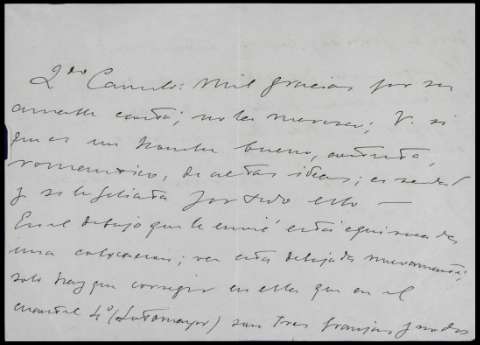 Qdo Camilo: Mil gracias por su
amable carta; no las merezco; V. si
que es un hombre bueno,
romantico, de altas ideas; es verdad
y se le felicita por todo ello —
En el dibujo que le envié está equivocada
una colocacion; va esta dibujada nuevamente;
solo hay que corregir en ellas que en el
cuartel 4º (Sotomayor) son tres franjas y no dos